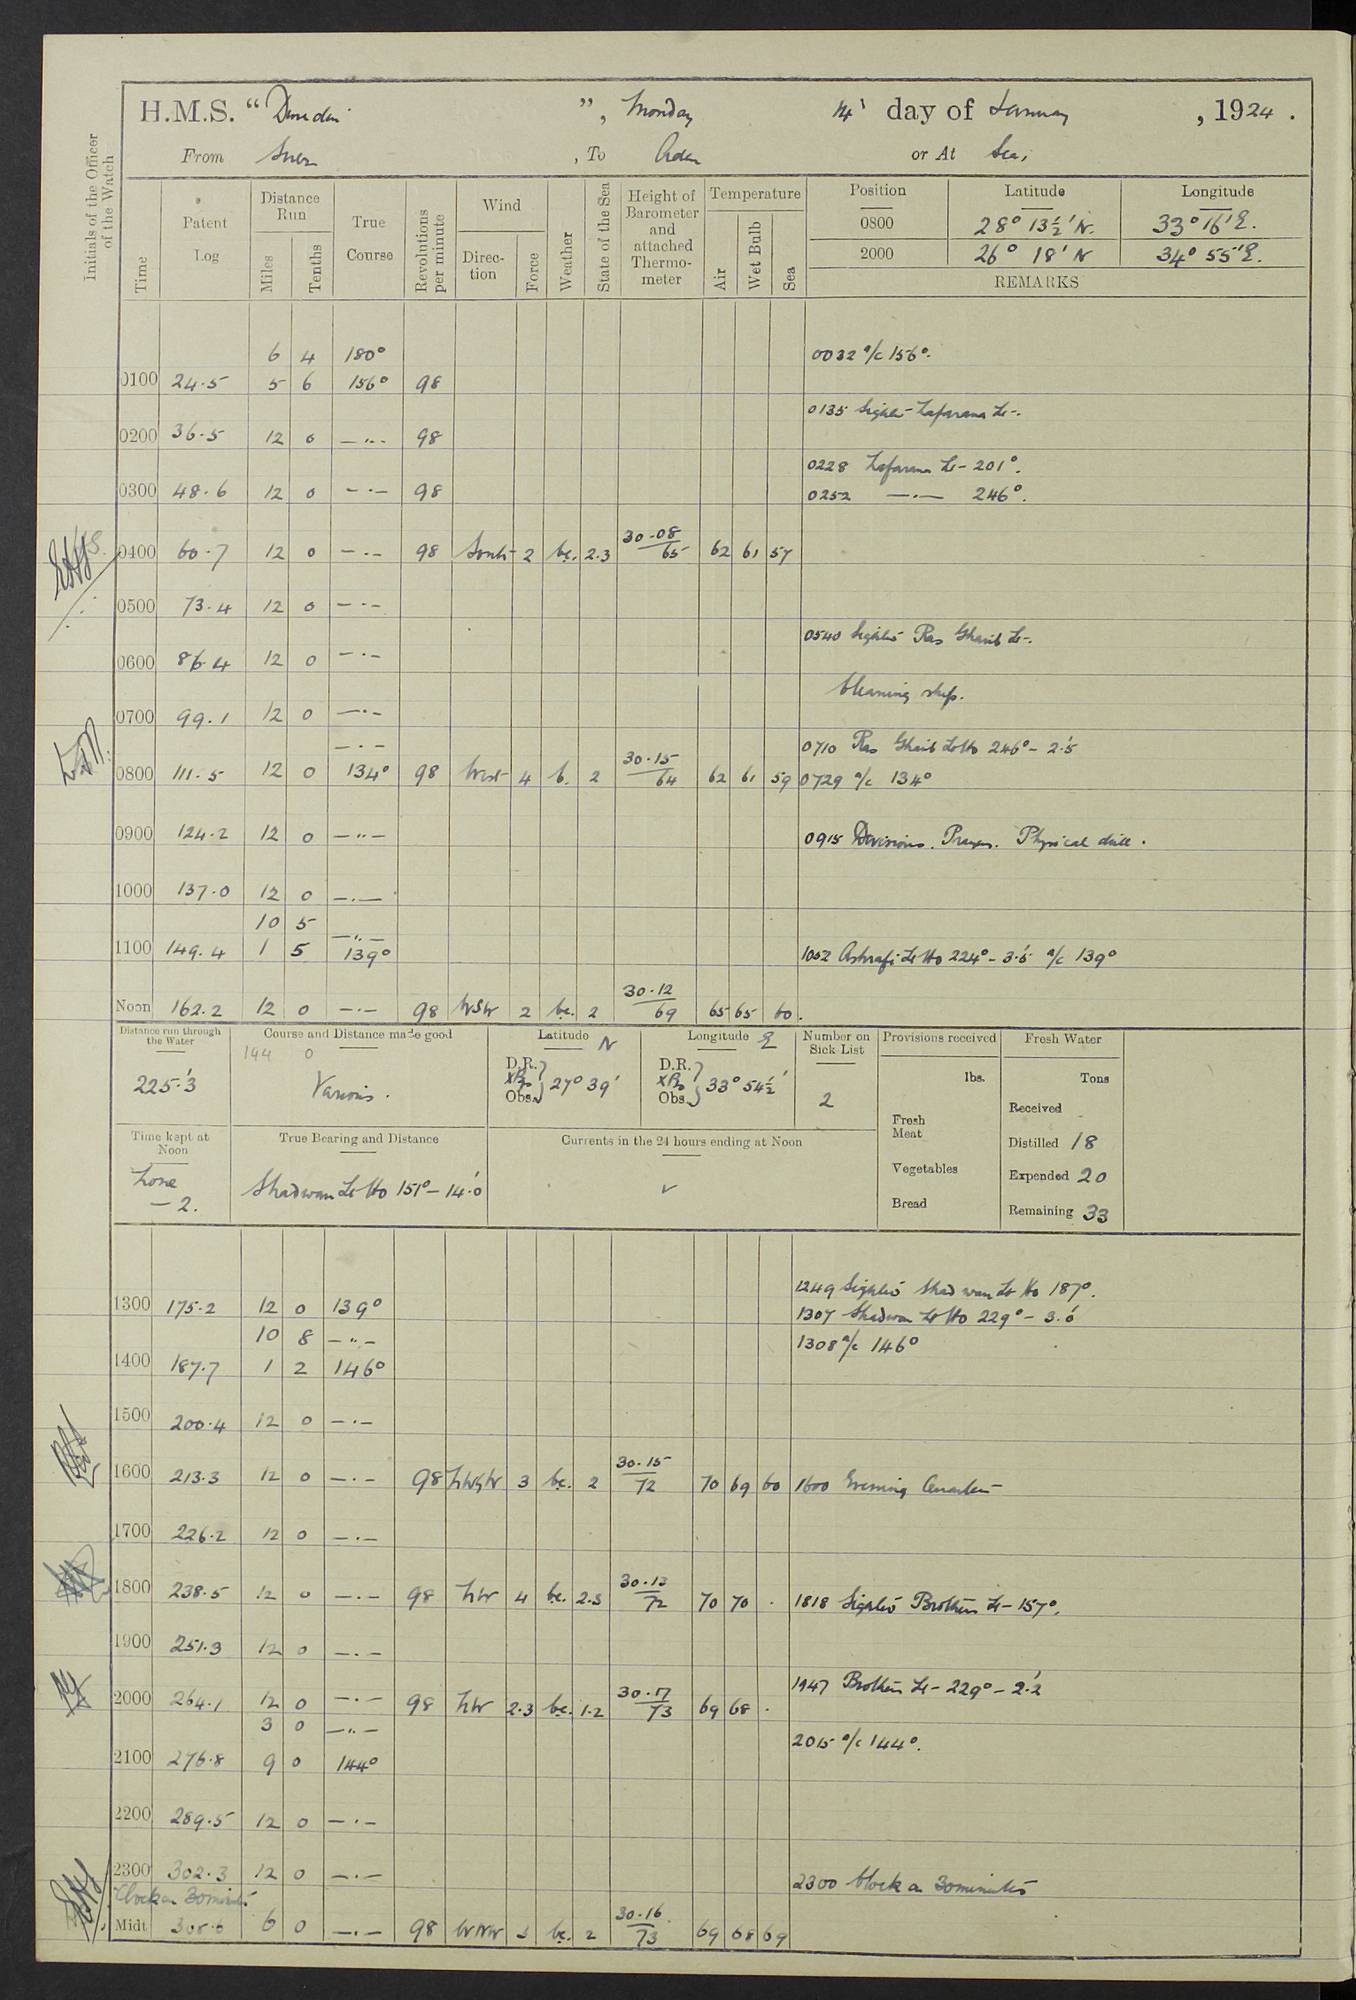 H.M.S. “Dunedin”, Monday 14th day of January, 1924.
From Suez, To Aden or At Sea,
Initials of the Officer of the Watch
Time
Patent Log
Distance Run
Miles Tenths
True Course
Revolutions per minute
Wind
Direction Force
Weather
State of the Sea
Height of Barometer and attached Thermometer
Temperature
Air Wet Bulb Sea
Position Latitude Longitude
0800 28° 13½' N. 33° 16' E.
2000 26° 18' N 34° 55' E.
REMARKS
6 4 180° 0032 a/c 156°.
0100 24.5 5 6 156° 98
0135 Sighted Zafarana Lt.
0200 36.5 12 0 —"— 98
0228 Zafarana Lt 201°.
0300 48.6 12 0 —"— 98 0252 —"— 246°.
0400 60.7 12 0 —"— 98 South 2 bc. 2.3 30.08/65 62 61 57
0500 73.4 12 0 —"—
0540 Sighted Ras Gharib Lt.
0600 86.4 12 0 —"—
Cleaning ship.
0700 99.1 12 0 —"—
—"— 0710 Ras Gharib Lt Ho 246° - 2.'5
0800 111.5 12 0 134° 98 West 4 b. 2 30.15/64 62 61 59 0729 a/c 134°
0900 124.2 12 0 —"— 0915 Divisions. Prayers. Physical drill.
1000 137.0 12 0 —"—
10 5 —"—
1100 149.4 1 5 139° 1052 Ashrafi Lt Ho 224° - 3.'5 a/c 139°
Noon 162.2 12 0 —"— 98 WSW 2 bc. 2 30.12/69 65 65 60.
Distance run through the Water
225.'3
Course and Distance made good
144 0
Various.
Latitude N
D.R.
Obs.
27° 39'
Longitude E
D.R.
Obs.
33° 54½'
Number on Sick List
2
Provisions received
lbs.
Fresh Meat
Vegetables
Bread
Fresh Water
Tons
Received
Distilled 18
Expended 20
Remaining 33
Time kept at Noon
Zone
- 2.
True Bearing and Distance
Shadwan Lt Ho 151° - 14.'0
Currents in the 24 hours ending at Noon
1249 Sighted Shadwan Lt Ho 187°.
1300 175.2 12 0 139° 1307 Shadwan Lt Ho 229° - 3.'0
10 8 —"— 1308 a/c 146°
1400 187.7 1 2 146°
1500 200.4 12 0 —"—
1600 213.3 12 0 —"— 98 NWbyW 3 bc. 2 30.15/72 70 69 60 1600 Evening Quarters
1700 226.2 12 0 —"—
1800 238.5 12 0 —"— 98 NW 4 bc. 2.3 30.13/72 70 70 . 1818 Sighted Brothers Lt 157°.
1900 251.3 12 0 —"—
1947 Brothers Lt 229° - 2.'2
2000 264.1 12 0 —"— 98 NW 2.3 bc. 1.2 30.17/73 69 68 .
3 0 —"— 2015 a/c 144°.
2100 276.8 9 0 144°
2200 289.5 12 0 —"—
2300 302.3 12 0 —"— 2300 Clock on 30 minutes
Clock on 30 minutes
Midt 308.6 6 0 —"— 98 WNW 3 bc. 2 30.16/73 69 68 69